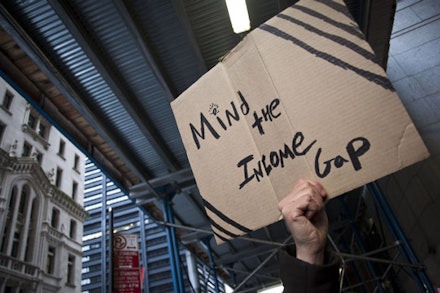 Mind
the
Income
Gap